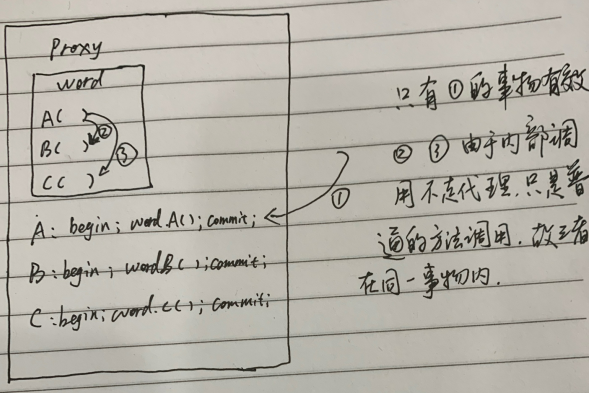 Proxy
word
A( )
B( ) ②
③
C( )
A: begin; word.A(); commit;
B: begin; word.B(); commit;
C: begin; word.C(); commit;
①
只有①的事物有效
② ③ 由于内部调
用不走代理,只是普
通的方法调用,故三者
在同一事物内.